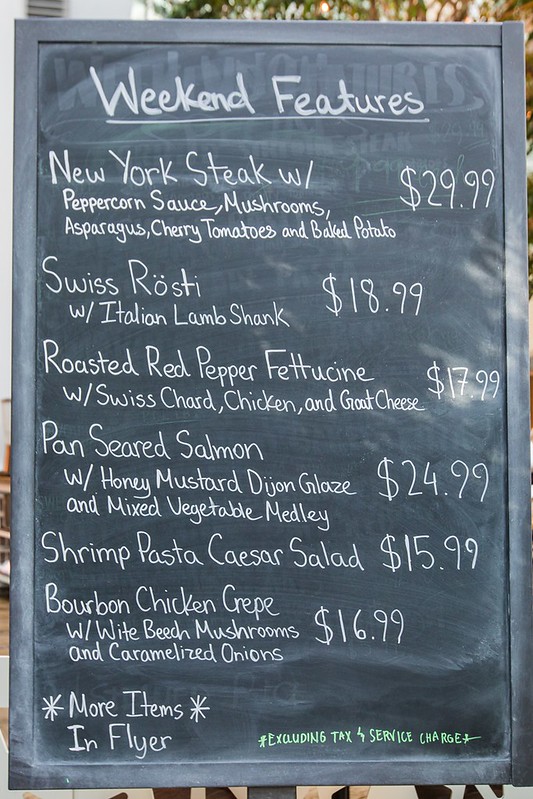 Weekend Features
New York Steak w/ $29.99
Peppercorn Sauce, Mushrooms,
Asparagus, Cherry Tomatoes and Baked Potato
Swiss Rösti $18.99
w/ Italian Lamb Shank
Roasted Red Pepper Fettucine $17.99
w/ Swiss Chard, Chicken, and Goat Cheese
Pan Seared Salmon
w/ Honey Mustard Dijon Glaze $24.99
and Mixed Vegetable Medley
Shrimp Pasta Caesar Salad $15.99
Bourbon Chicken Crepe
w/ Wite Beech Mushrooms $16.99
and Caramelized Onions
*More Items*
In Flyer
*EXCLUDING TAX & SERVICE CHARGE*